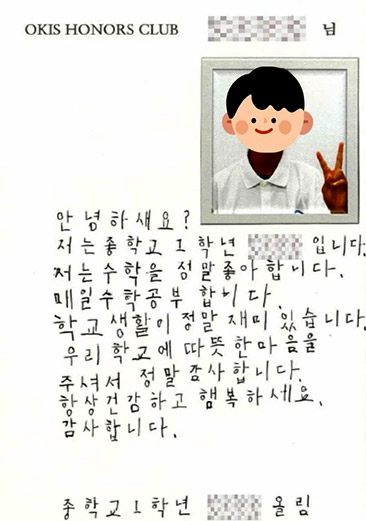 OKIS HONORS CLUB 님
안녕하새요?
저는중학교 1 학년 입니다.
저는수학을 정말좋아합니다.
매일수학공부 합니다.
학교생활이정말 재미있습니다.
우리학교에 따뜻한마음을
주셔서 정말감사합니다.
항상건강하고 행복하세요.
감사합니다.
중학교1학년 올림